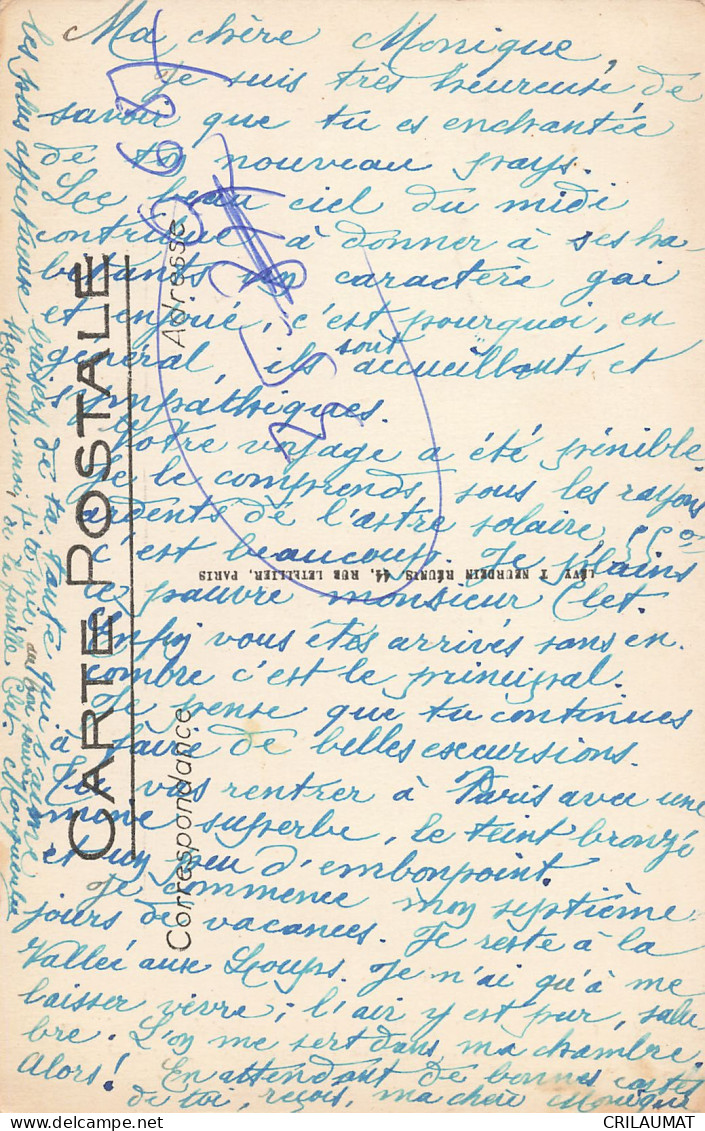 Ma chère Monique,
Je suis très heureuse de
savoir que tu es enchantée
de ton nouveau pays.
Le beau ciel du midi
contribue à donner à ses ha
bitants un caractère gai
et enjoué, c'est pourquoi, en
général, ils sont accueillants et
sympathiques.
Votre voyage a été pénible
je le comprends, sous les rayons
ardents de l'astre solaire,
c'est beaucoup. Je plains
le pauvre monsieur Clet.
Enfin vous êtes arrivés sans en
combre c'est le principal.
Je pense que tu continues
à faire de belles excursions.
Tu vas rentrer à Paris avec une
mine superbe, le teint bronzé
et un peu d'embonpoint.
Je commence mon septième
jours de vacances. Je reste à la
Vallée aux Loups. Je n'ai qu'à me
laisser vivre; l'air y est pur, salu
bre. L'on me sert dans ma chambre.
Alors! En attendant de bonnes cartes
de toi, reçois, ma chère Monique
les plus affectueux baisers de ta tante qui t'aime
Rappelle-moi, je te prie au bon souvenir
de la famille Clet.
CARTE POSTALE
Correspondance
Adresse
LÉVY & NEURDEIN RÉUNIS 44, RUE LETELLIER, PARIS
CRILAUMAT